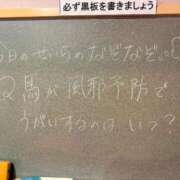 必ず黒板を書きましょう
今日のせいらのなぞなぞ。。
Q 馬が風邪予防で
うがいするのは いつ？